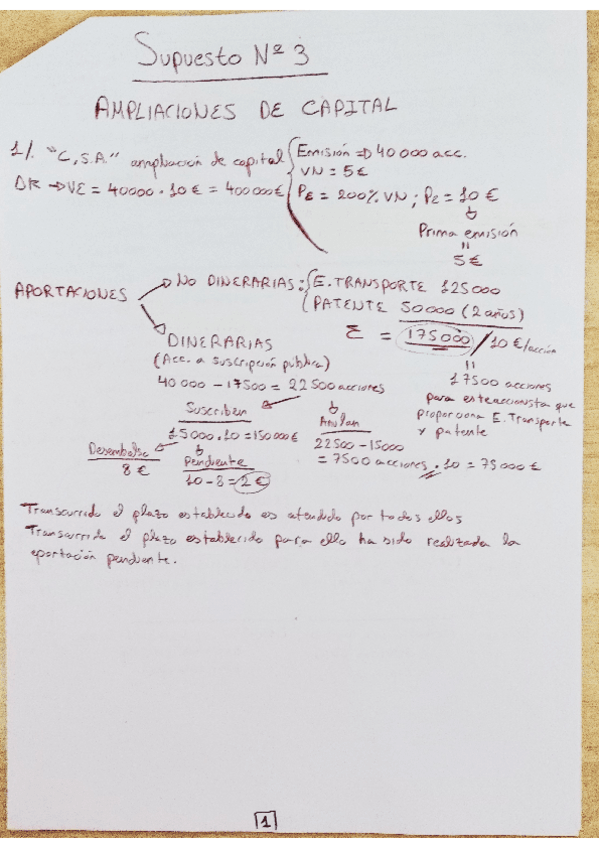 Supuesto Nº 3
AMPLIACIONES DE CAPITAL
1/. "C, S.A." ampliación de capital { Emisión => 40 000 acc.
VN = 5€
ΔK → VE = 40000 · 10 € = 400 000€
PE = 200% VN ; PE = 10 €
Prima emisión
"
5 €
APORTACIONES
NO DINERARIAS: { E. TRANSPORTE 125000
PATENTE 50000 (2 años)
Σ = 175000 / 10 €/acción
"
17500 acciones
para este accionista que
proporciona E. Transporte
y patente
DINERARIAS
(Acc. a suscripción pública)
40 000 - 17500 = 22 500 acciones
Suscriben
15000 · 10 = 150000€
Desembolso
8 €
Pendiente
10 - 8 = 2 €
Anulan
22500 - 15000
= 7500 acciones · 10 = 75000 €
Transcurrido el plazo establecido es atendido por todos ellos
Transcurrido el plazo establecido para ello ha sido realizada la
aportación pendiente.
1